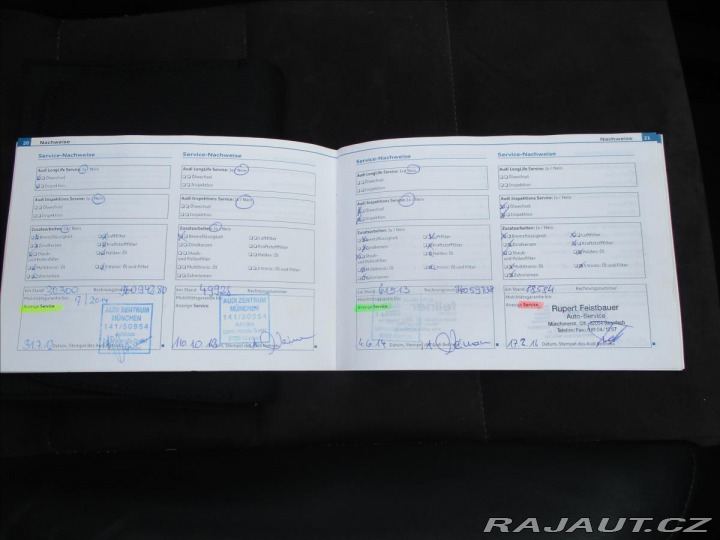 20 Nachweise
Service-Nachweise
Audi LongLife Service: Ja / Nein
Ölwechsel
Inspektion
Audi Inspektions Service: Ja / Nein
Ölwechsel
Inspektion
Zusatzarbeiten: Ja / Nein
Bremsflüssigkeit
Luftfilter
Zündkerzen
Kraftstofffilter
Staub-
und Pollenfilter
Haldex: Öl
Multitronic: Öl
S tronic: Öl und Filter
Zahnriemen
km-Stand 30300
Rechnungsnummer
Mobilitätsgarantie bis:
Anzeige Service:
AUDI ZENTRUM
MÜNCHEN
141/50954
Datum, Stempel des Audi
Service-Nachweise
Audi LongLife Service: Ja / Nein
Ölwechsel
Inspektion
Audi Inspektions Service: Ja / Nein
Ölwechsel
Inspektion
Zusatzarbeiten: Ja / Nein
Bremsflüssigkeit
Luftfilter
Zündkerzen
Kraftstofffilter
Staub-
und Pollenfilter
Haldex: Öl
Multitronic: Öl
S tronic: Öl und Filter
Zahnriemen
km-Stand
Rechnungsnummer
Mobilitätsgarantie bis:
Anzeige Service:
AUDI ZENTRUM
MÜNCHEN
141/50954
16.10.13 Datum, Stempel des
Nachweise 21
Service-Nachweise
Audi LongLife Service: Ja / Nein
Ölwechsel
Inspektion
Audi Inspektions Service: Ja / Nein
Ölwechsel
Inspektion
Zusatzarbeiten: Ja / Nein
Bremsflüssigkeit
Luftfilter
Zündkerzen
Kraftstofffilter
Staub-
und Pollenfilter
Haldex: Öl
Multitronic: Öl
S tronic: Öl und Filter
Zahnriemen
km-Stand 61513
Mobilitätsgarantie bis:
Anzeige Service:
4.6.14 Datum, Stempel des Audi
Service-Nachweise
Audi LongLife Service: Ja / Nein
Ölwechsel
Inspektion
Audi Inspektions Service: Ja / Nein
Ölwechsel
Inspektion
Zusatzarbeiten: Ja / Nein
Bremsflüssigkeit
Luftfilter
Zündkerzen
Kraftstofffilter
Staub-
und Pollenfilter
Haldex: Öl
Multitronic: Öl
S tronic: Öl und Filter
Zahnriemen
km-Stand
Rechnungsnummer
Mobilitätsgarantie bis:
Anzeige Service:
Rupert Feistbauer
Auto-Service
Datum, Stempel des Audi
RAJAUT.CZ